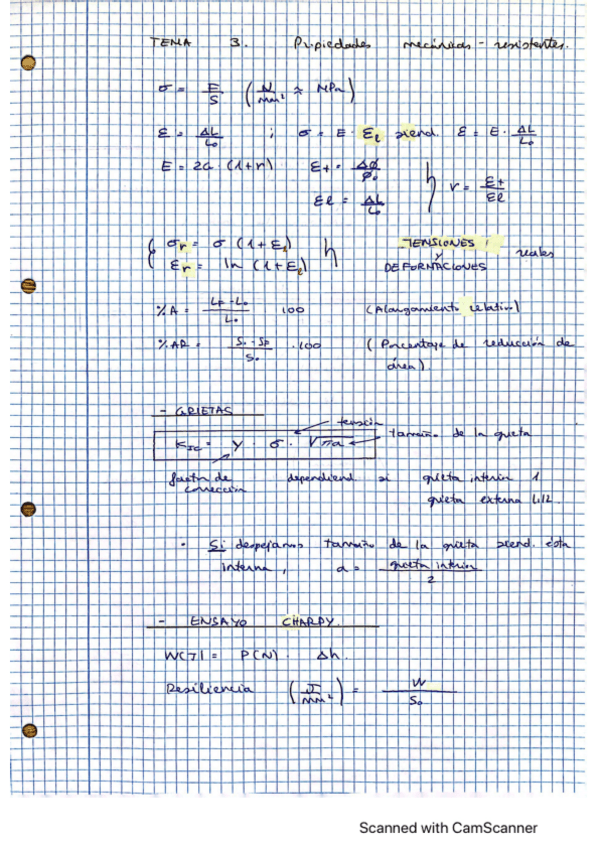 TEMA 3. Propiedades mecánicas - resistentes.
σ = F/S (N/mm² ≈ MPa)
ε = ΔL/L₀ ; σ = E · εℓ siend. ε = E · ΔL/L₀
E = 2G · (1+ν) εt = Δφ/φ₀
εℓ = ΔL/L₀
ν = εt/εℓ
σr = σ (1+εℓ)
εr = ln (1+εℓ)
TENSIONES Y DEFORMACIONES reales
%A = Lf-L₀/L₀ 100 (Alargamiento relativo)
%AR = S₀-Sf/S₀ · 100 (Porcentaje de reducción de área).
- GRIETAS
KIC = Y · σ · √πa
tensión
tamaño de la grieta
factor de corrección
dependiend si grieta interior 1
grieta externa 1,12.
· Si despejamos tamaño de la grieta siend. esta
interna, a = grieta interior/2
- ENSAYO CHARPY.
W(J) = P(N) · Δh.
Resiliencia (J/mm²) = W/S₀
Scanned with CamScanner